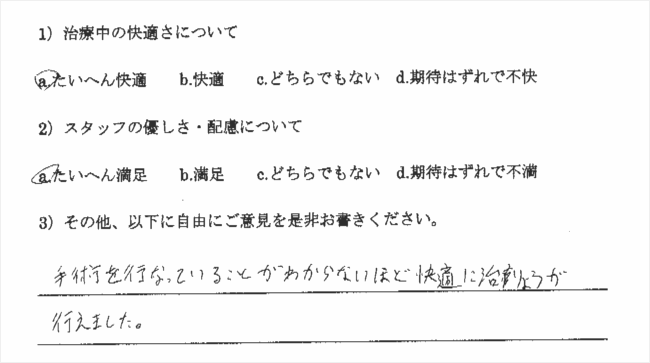 1）治療中の快適さについて
a.たいへん快適　b.快適　c.どちらでもない　d.期待はずれで不快
2）スタッフの優しさ・配慮について
a.たいへん満足　b.満足　c.どちらでもない　d.期待はずれで不満
3）その他、以下に自由にご意見を是非お書きください。
手術を行なっていることがわからないほど快適に治りょうが
行えました。